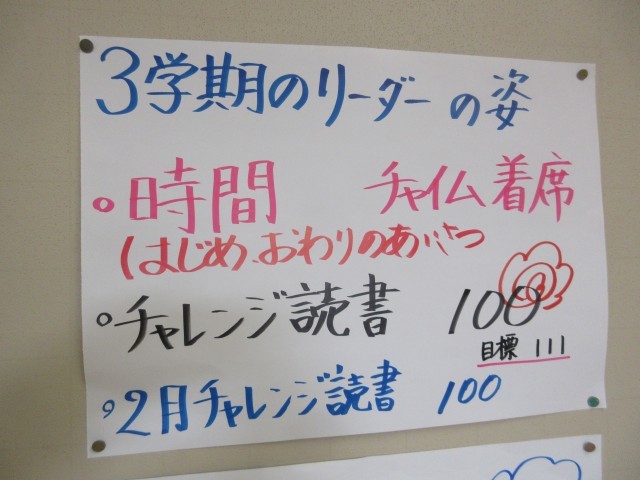 3学期のリーダーの姿
○時間 チャイム着席
はじめ、おわりのあいさつ
○チャレンジ読書 100
目標 111
○2月チャレンジ読書 100